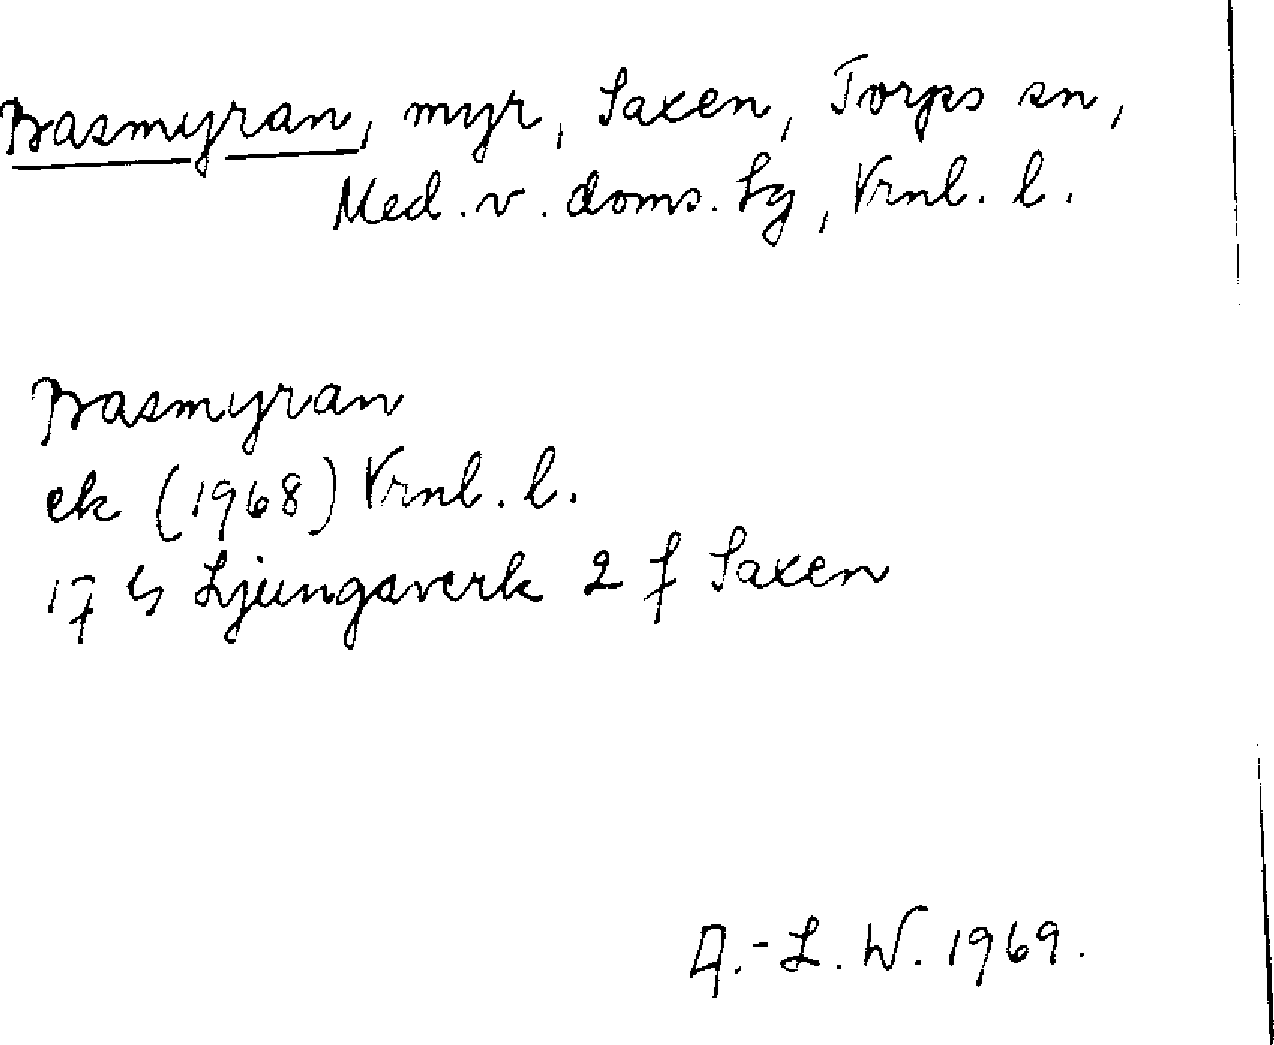 Basmyran, myr, Saxen, Torps sn,
Med. v. doms. lg, Vrnl. l.
Basmyran
ek (1968) Vrnl. l.
17 G Ljungaverk 2 f Saxen
A.-L. W. 1969.